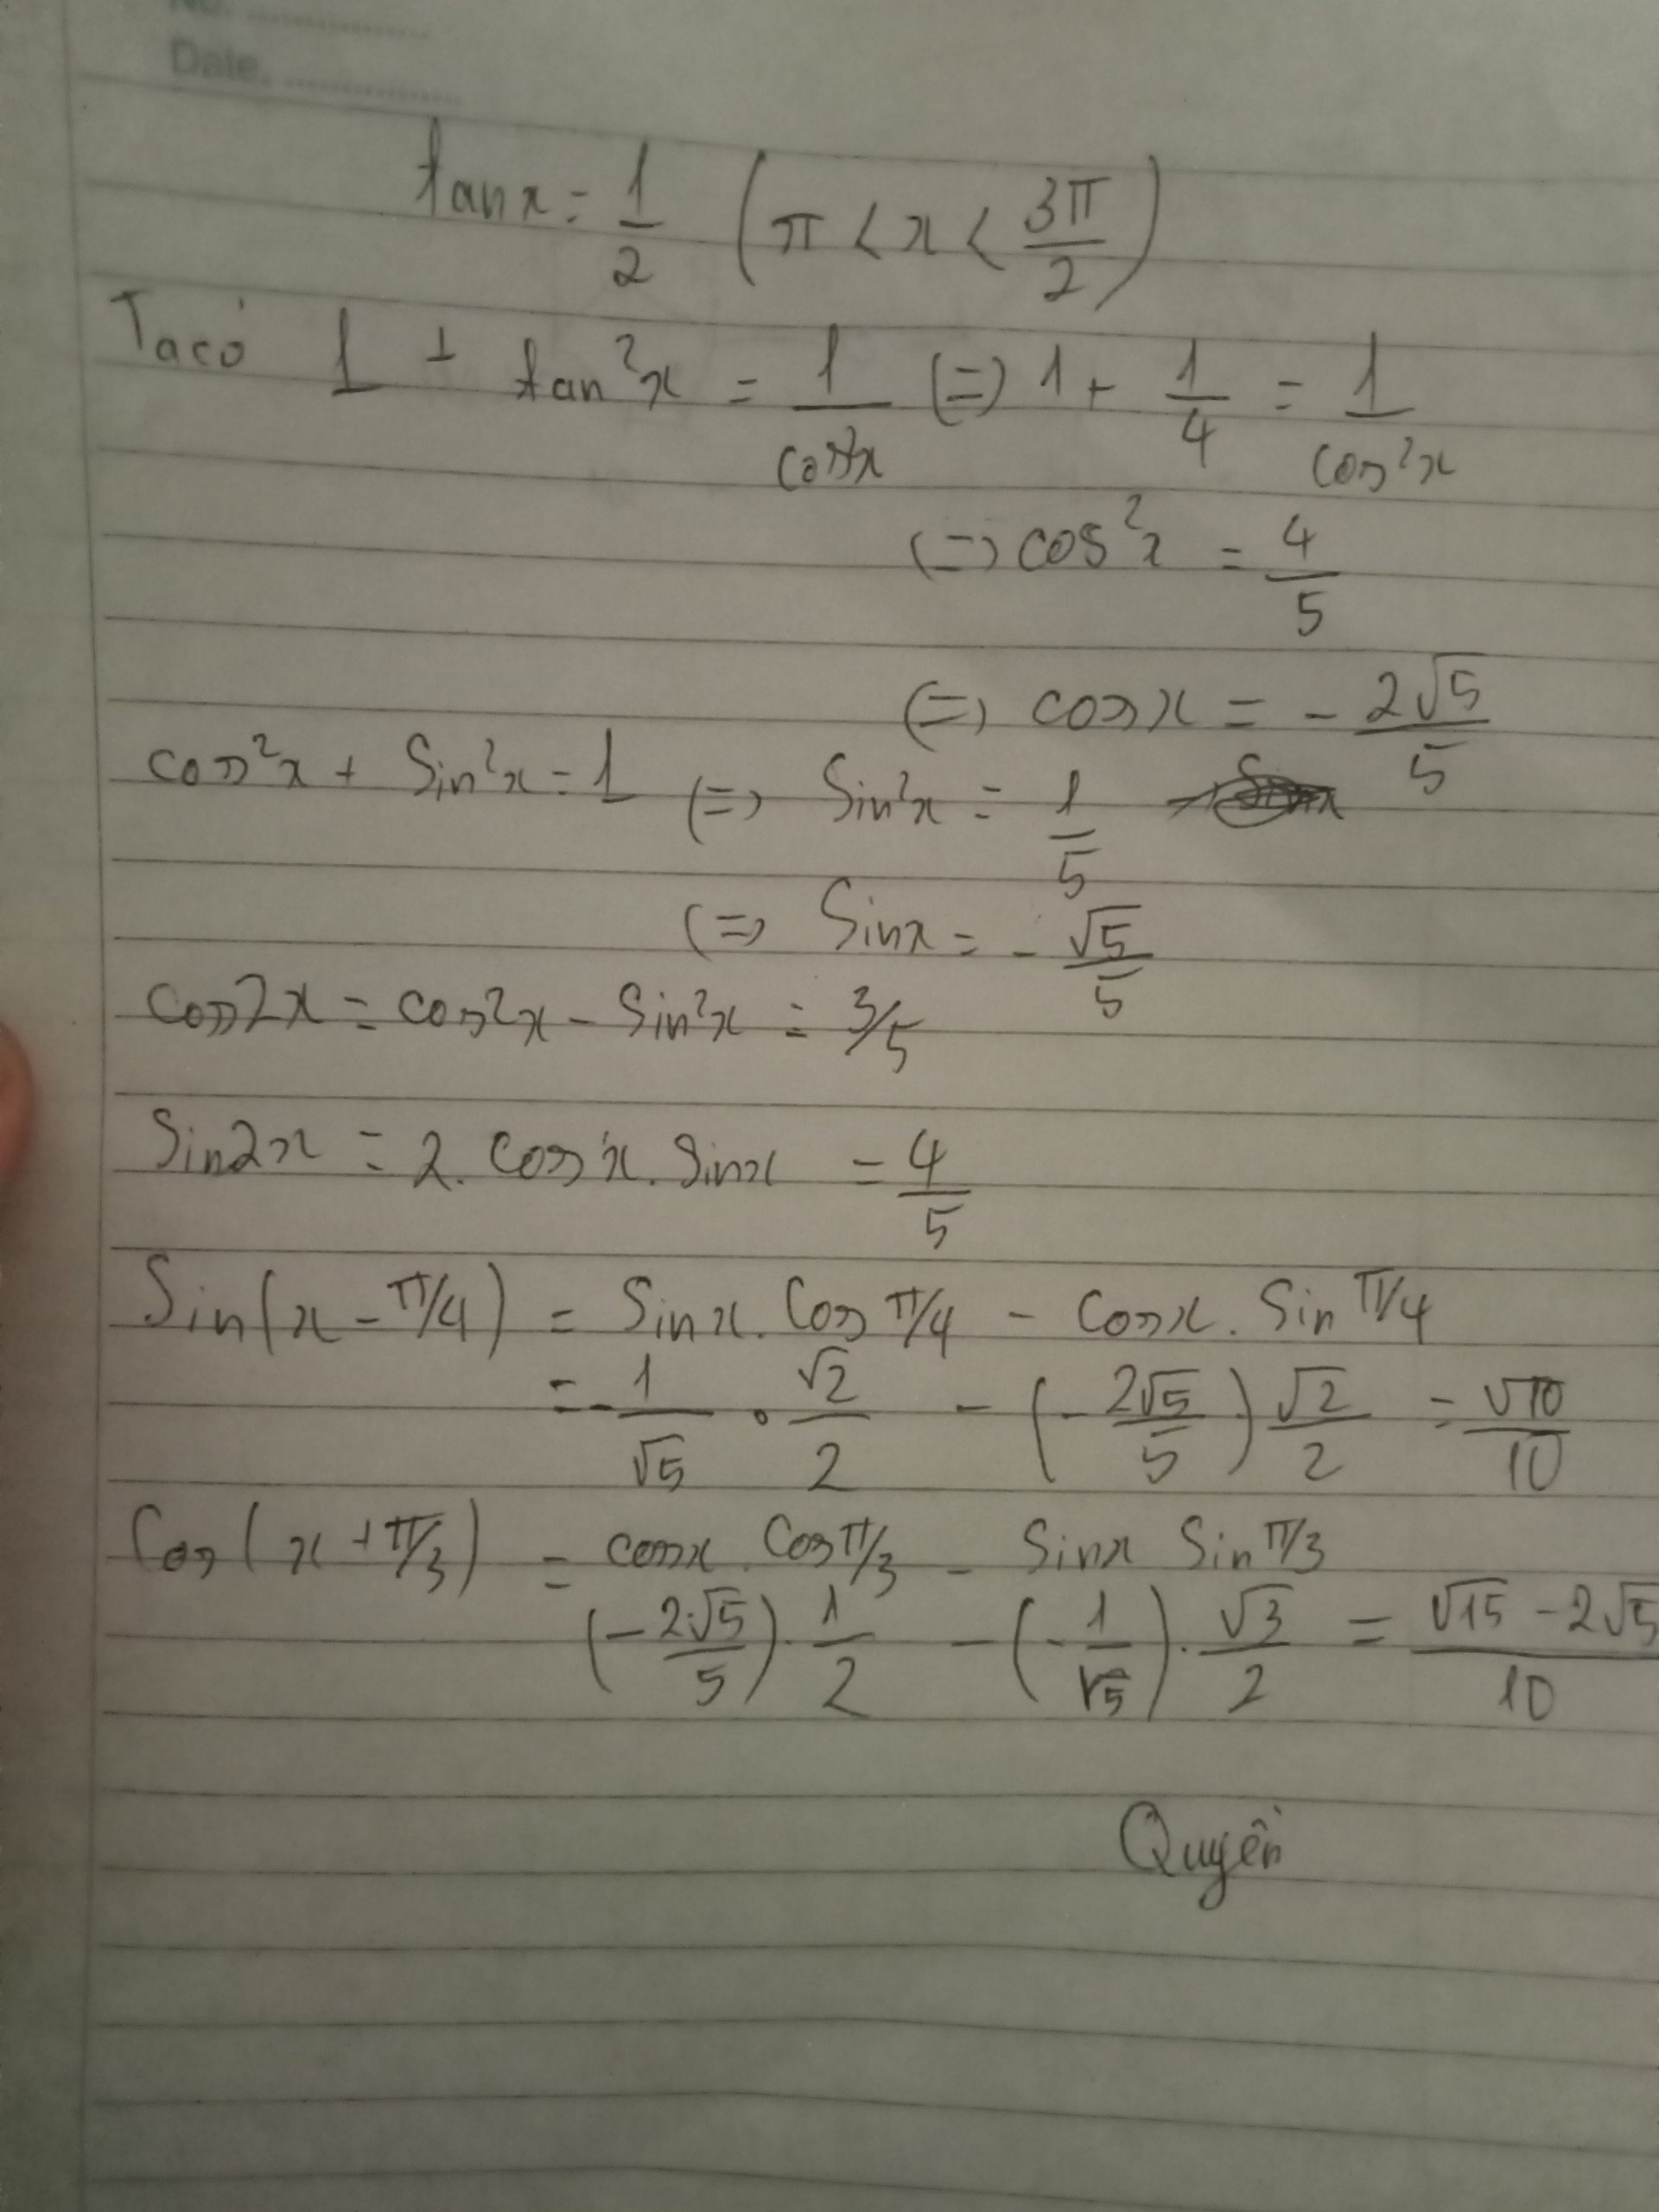 No. ................
Date. ................
tan x = 1/2 (π < x < 3π/2)
Ta có 1 + tan²x = 1/cos²x (=) 1 + 1/4 = 1/cos²x
(=) cos²x = 4/5
(=) cos x = - 2√5/5
cos²x + Sin²x = 1 (=) Sin²x = 1/5
(=) Sin x = - √5/5
cos2x = cos²x - Sin²x = 3/5
Sin2x = 2. cos x. sin x = 4/5
Sin(x - π/4) = Sin x. Cos π/4 - Cos x. Sin π/4
= - 1/√5 . √2/2 - (- 2√5/5) √2/2 = √10/10
Cos(x + π/3) = cos x. Cos π/3 - Sin x Sin π/3
(- 2√5/5). 1/2 - (- 1/√5). √3/2 = √15 - 2√5/10
Quyên